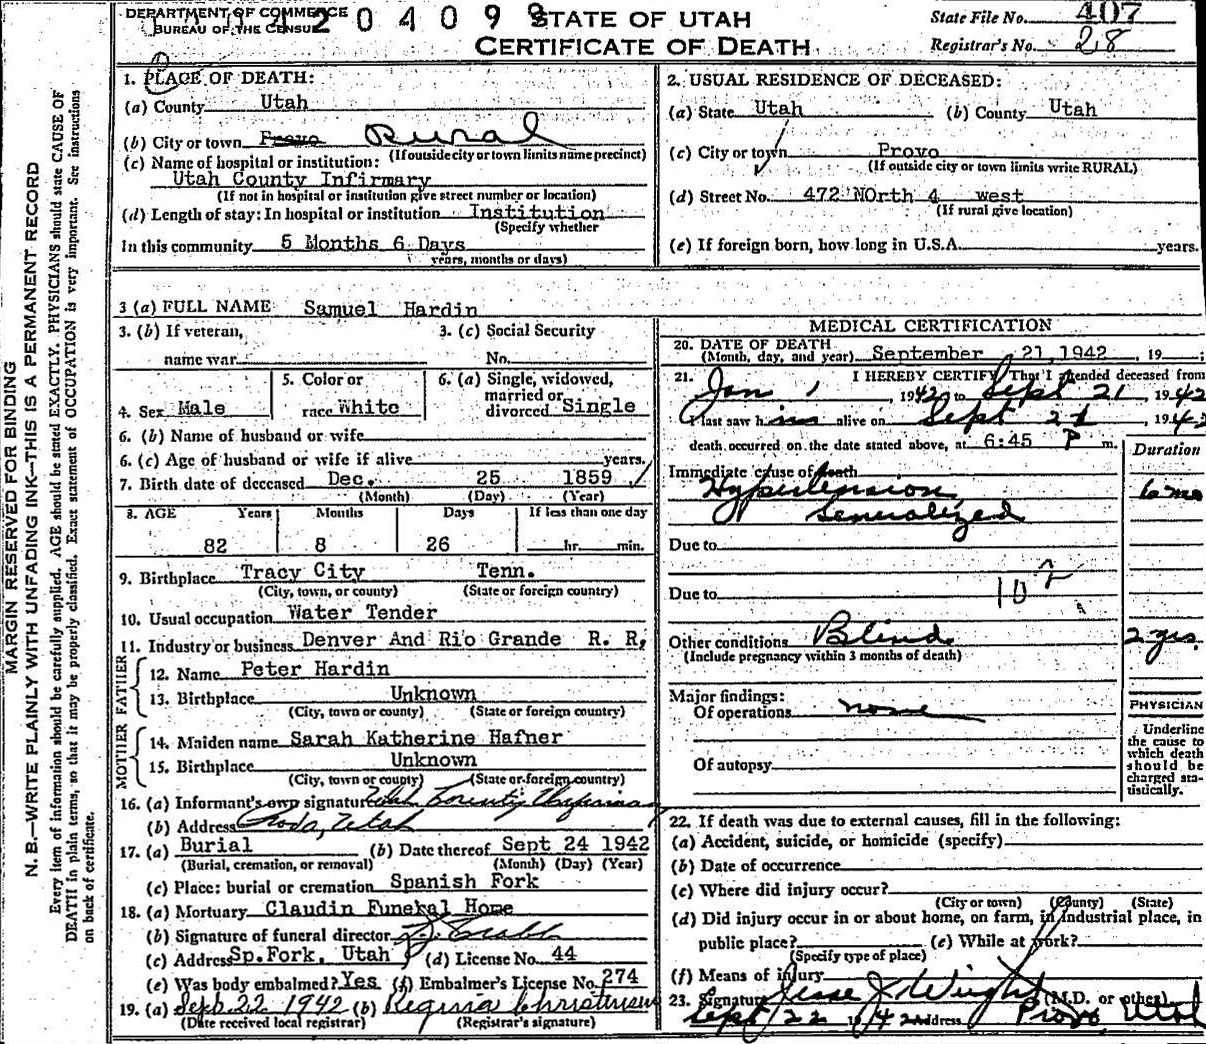 DEPARTMENT OF COMMERCE
BUREAU OF THE CENSUS
2 0 4 0 9
STATE OF UTAH
CERTIFICATE OF DEATH
State File No. 407
Registrar's No. 28
1. PLACE OF DEATH:
(a) County Utah
(b) City or town Provo Rural
(If outside city or town limits name precinct)
(c) Name of hospital or institution:
Utah County Infirmary
(If not in hospital or institution give street number or location)
(d) Length of stay: In hospital or institution Institution
(Specify whether
In this community 5 Months 6 Days
years, months or days)
2. USUAL RESIDENCE OF DECEASED:
(a) State Utah (b) County Utah
(c) City or town Provo
(If outside city or town limits write RURAL)
(d) Street No. 472 NOrth 4 west
(If rural give location)
(e) If foreign born, how long in U.S.A. years.
3 (a) FULL NAME Samuel Hardin
3. (b) If veteran, 3. (c) Social Security
name war No.
4. Sex Male
5. Color or
race White
6. (a) Single, widowed,
married or
divorced Single
6. (b) Name of husband or wife
6. (c) Age of husband or wife if alive years.
7. Birth date of deceased Dec. 25 1859
(Month) (Day) (Year)
8. AGE Years Months Days If less than one day
82 8 26 hr. min.
9. Birthplace Tracy City Tenn.
(City, town, or county) (State or foreign country)
10. Usual occupation Water Tender
11. Industry or business Denver And Rio Grande R. R.
FATHER
12. Name Peter Hardin
13. Birthplace Unknown
(City, town or county) (State or foreign country)
MOTHER
14. Maiden name Sarah Katherine Hafner
15. Birthplace Unknown
(City, town or county) (State or foreign country)
16. (a) Informant's own signature Utah County Infirmary
(b) Address Provo, Utah
17. (a) Burial (b) Date thereof Sept 24 1942
(Burial, cremation, or removal) (Month) (Day) (Year)
(c) Place: burial or cremation Spanish Fork
18. (a) Mortuary Claudin Funeral Home
(b) Signature of funeral director
(c) Address Sp.Fork, Utah (d) License No. 44
(e) Was body embalmed? Yes (f) Embalmer's License No. 274
19. (a) Sept 22 1942 (b) Regina Christensen
(Date received local registrar) (Registrar's signature)
MEDICAL CERTIFICATION
20. DATE OF DEATH
(Month, day, and year) September 21, 1942, 19 ;
21. I HEREBY CERTIFY, That I attended deceased from
Jan 1, 1942 to Sept 21 1942
I last saw him alive on Sept 21, 1942
death occurred on the date stated above, at 6:45 P m.
Duration
Immediate cause of death
Hypertension, 6 mo
Generalized
Due to
Due to
102
Other conditions Blind 2 yrs.
(Include pregnancy within 3 months of death)
Major findings:
Of operations none
Of autopsy
PHYSICIAN
Underline
the cause to
which death
should be
charged sta-
tistically.
22. If death was due to external causes, fill in the following:
(a) Accident, suicide, or homicide (specify)
(b) Date of occurrence
(c) Where did injury occur?
(City or town) (County) (State)
(d) Did injury occur in or about home, on farm, in industrial place, in
public place? (e) While at work?
(Specify type of place)
(f) Means of injury
23. Signature Jesse J Wright (M.D. or other)
Sept 22 1942 Address Provo, Utah
MARGIN RESERVED FOR BINDING
N. B.—WRITE PLAINLY WITH UNFADING INK—THIS IS A PERMANENT RECORD
Every item of information should be carefully supplied. AGE should be stated EXACTLY. PHYSICIANS should state CAUSE OF
DEATH in plain terms, so that it may be properly classified. Exact statement of OCCUPATION is very important. See instructions
on back of certificate.